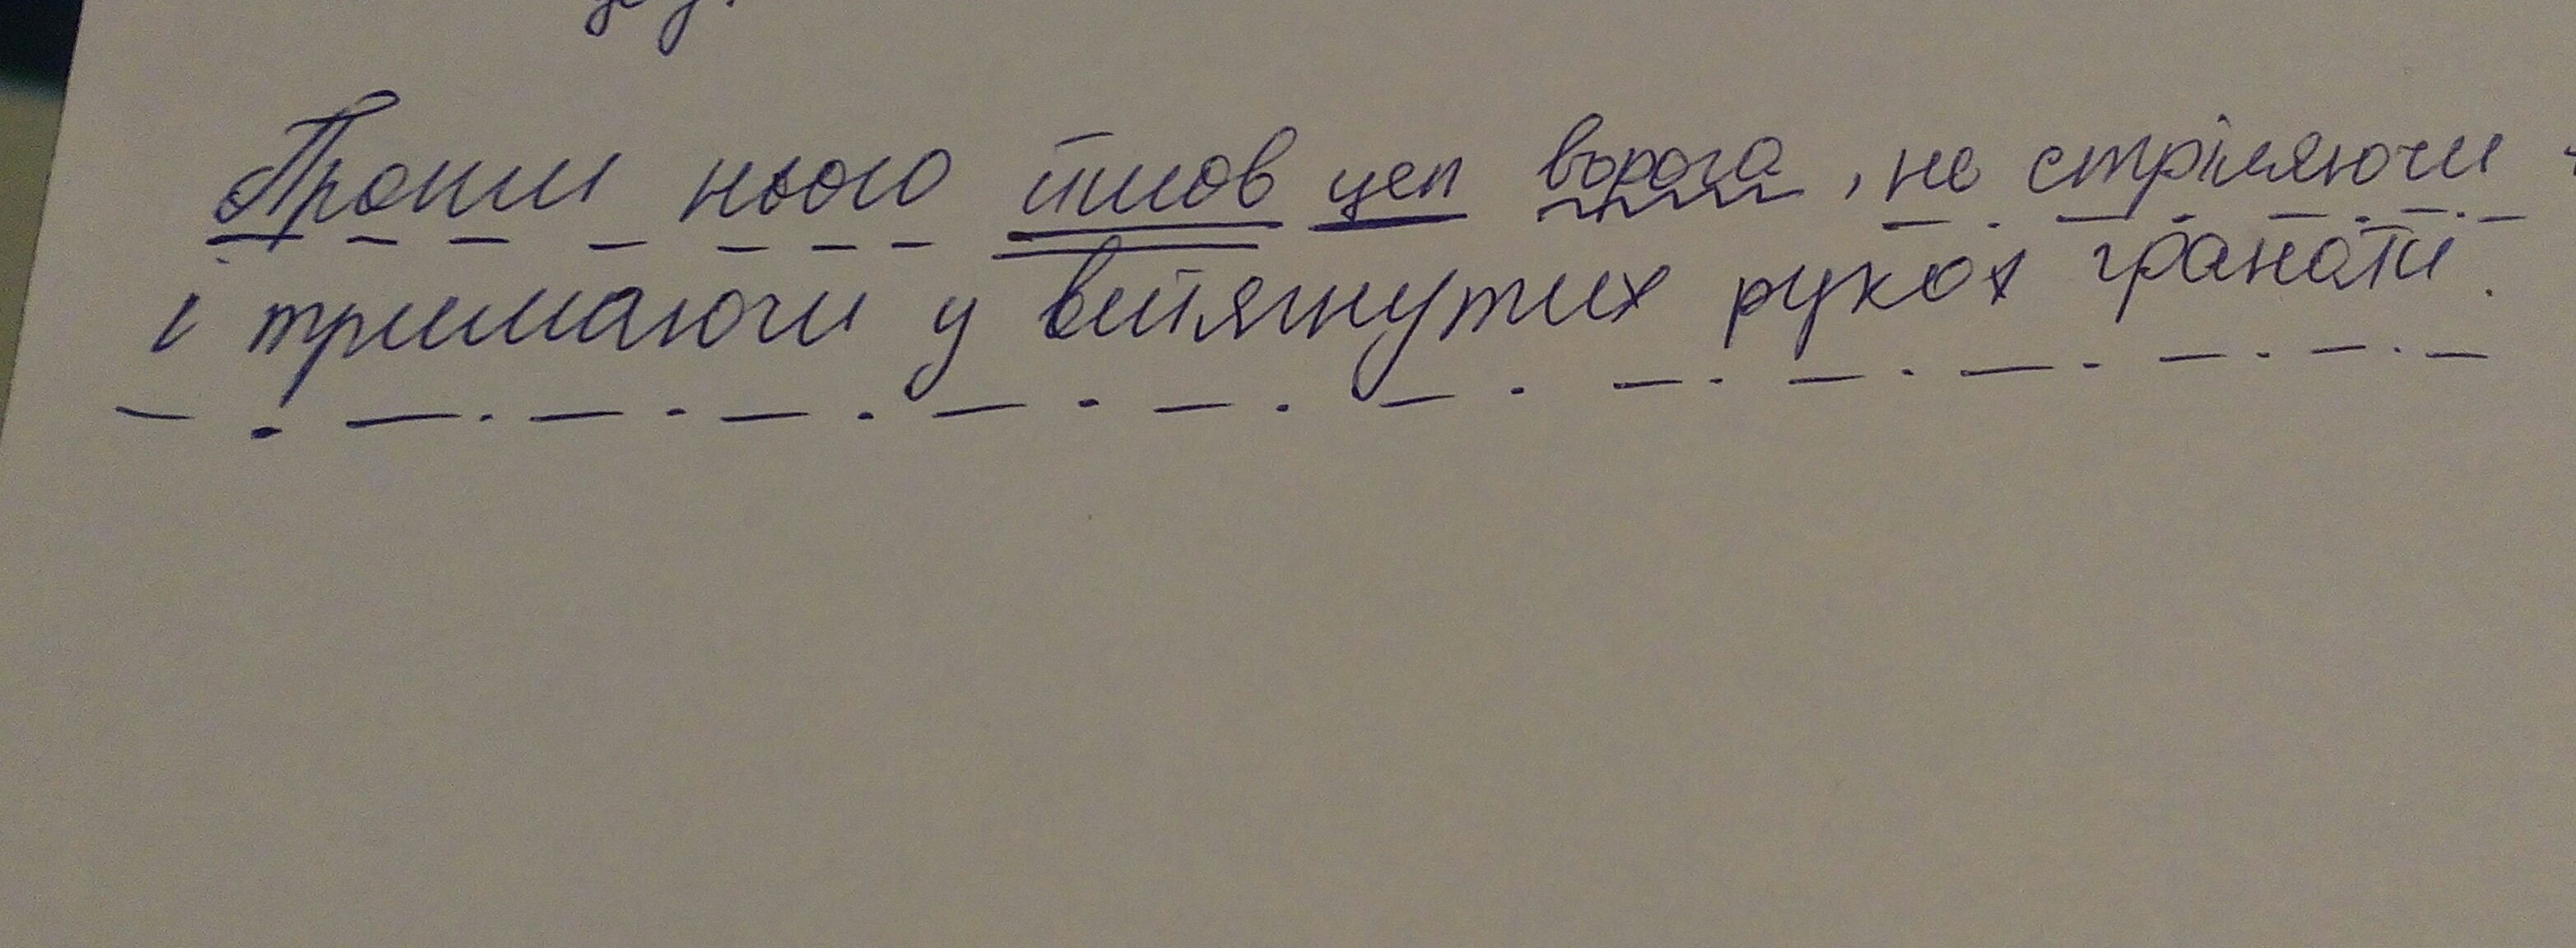 Проти нього йшов цеп ворога, не стріляючи
і тримаючи у витягнутих руках гранати.